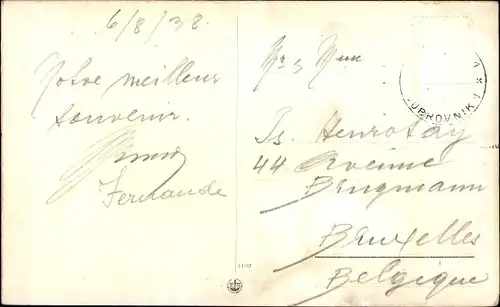 6/8/38.
Notre meilleur
souvenir.
Fernande
Mr & Mme
Js. Henrotay
44 Avenue
Brugmann
Bruxelles
Belgique
DUBROVNIK 1